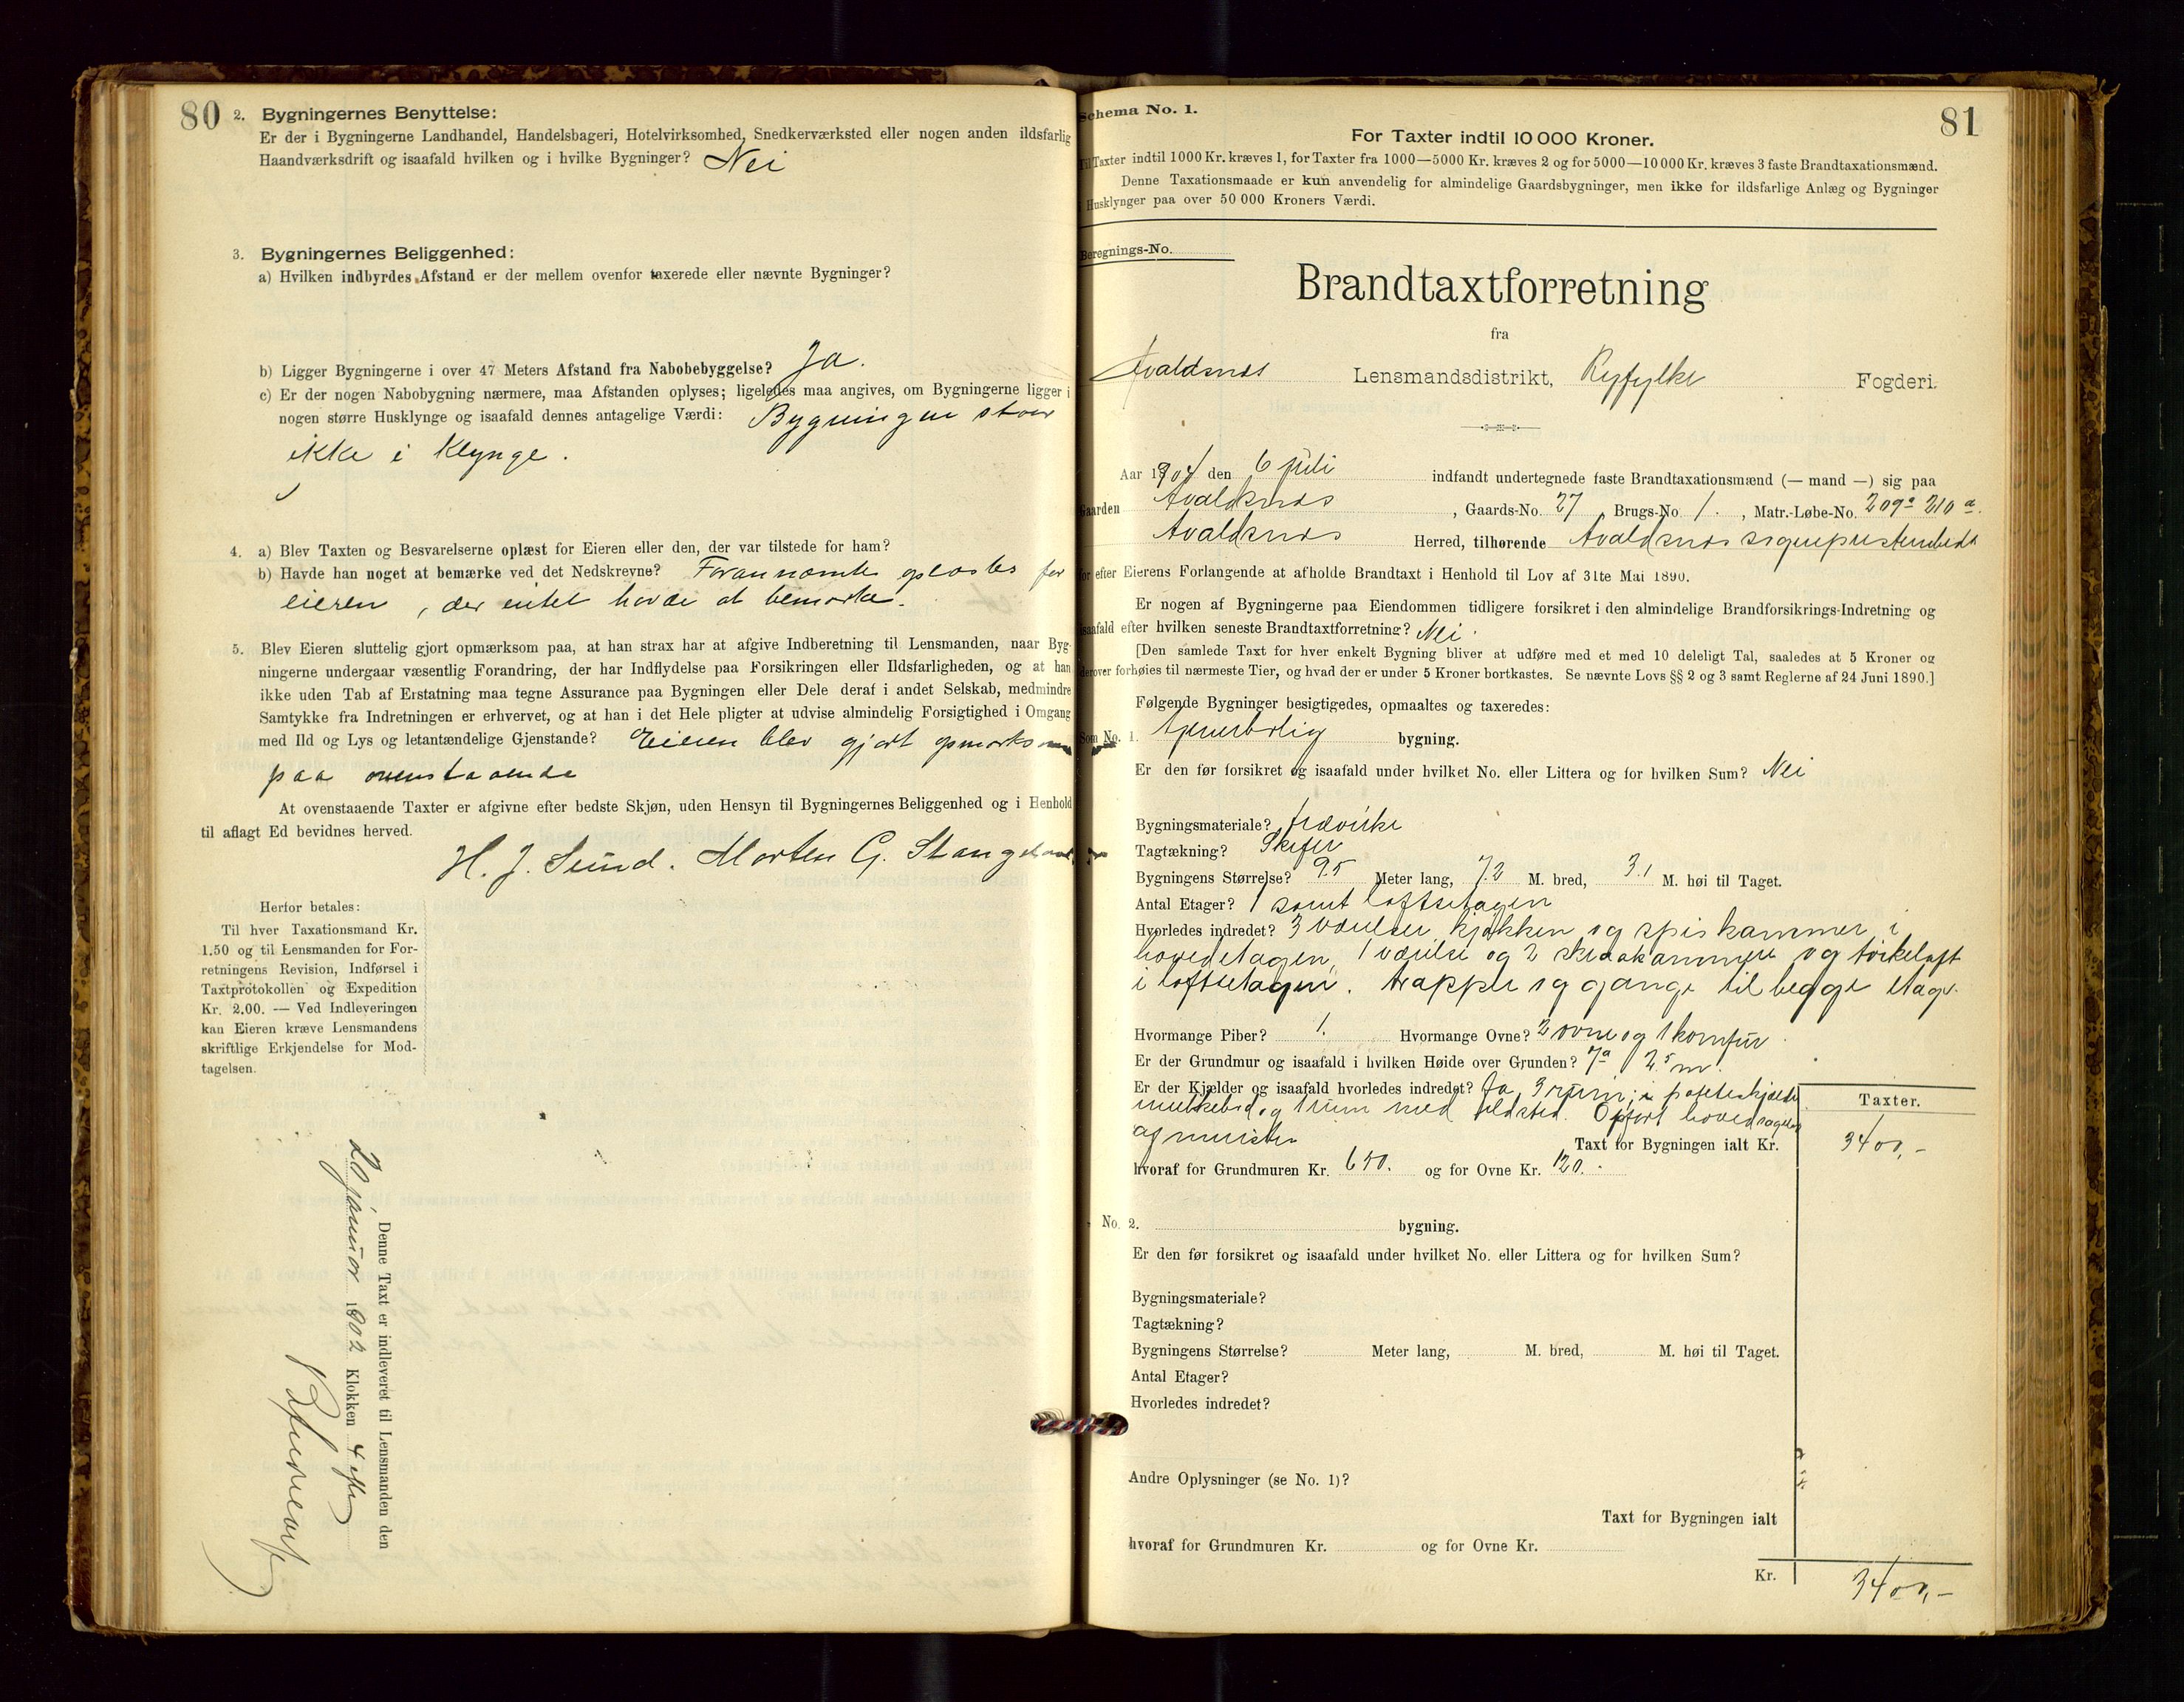 80
2. Bygningernes Benyttelse:
Er der i Bygningerne Landhandel, Handelsbageri, Hotelvirksomhed, Snedkerværksted eller nogen anden ildsfarlig
Haandværksdrift og isaafald hvilken og i hvilke Bygninger? Nei
3. Bygningernes Beliggenhed:
a) Hvilken indbyrdes Afstand er der mellem ovenfor taxerede eller nævnte Bygninger?
b) Ligger Bygningerne i over 47 Meters Afstand fra Nabobebyggelse? Ja.
c) Er der nogen Nabobygning nærmere, maa Afstanden oplyses; ligeledes maa angives, om Bygningerne ligger i
nogen større Husklynge og isaafald dennes antagelige Værdi: Bygningen staar
ikke i Klynge.
4. a) Blev Taxten og Besvarelserne oplæst for Eieren eller den, der var tilstede for ham?
b) Havde han noget at bemærke ved det Nedskrevne? Forannævnte oplæstes for
eieren, der intet havde at bemærke.
5. Blev Eieren sluttelig gjort opmærksom paa, at han strax har at afgive Indberetning til Lensmanden, naar Byg-
ningerne undergaar væsentlig Forandring, der har Indflydelse paa Forsikringen eller Ildsfarligheden, og at han
ikke uden Tab af Erstatning maa tegne Assurance paa Bygningen eller Dele deraf i andet Selskab, medmindre
Samtykke fra Indretningen er erhvervet, og at han i det Hele pligter at udvise almindelig Forsigtighed i Omgang
med Ild og Lys og letantændelige Gjenstande? Eieren blev gjort opmærksom
paa ovenstaaende
At ovenstaaende Taxter er afgivne efter bedste Skjøn, uden Hensyn til Bygningernes Beliggenhed og i Henhold
til aflagt Ed bevidnes herved.
H. J. Sund. Morten G. Stangeland
Herfor betales:
Til hver Taxationsmand Kr.
1.50 og til Lensmanden for For-
retningens Revision, Indførsel i
Taxtprotokollen og Expedition
Kr. 2.00. — Ved Indleveringen
kan Eieren kræve Lensmandens
skriftlige Erkjendelse for Mod-
tagelsen.
Denne Taxt er indleveret til Lensmanden den
20 januar 1902 Klokken 4 eftm
81
Schema No. 1.
For Taxter indtil 10 000 Kroner.
Til Taxter indtil 1000 Kr. kræves 1, for Taxter fra 1000—5000 Kr. kræves 2 og for 5000—10 000 Kr. kræves 3 faste Brandtaxationsmænd.
Denne Taxationsmaade er kun anvendelig for almindelige Gaardsbygninger, men ikke for ildsfarlige Anlæg og Bygninger
i Husklynger paa over 50 000 Kroners Værdi.
Beregnings-No.
Brandtaxtforretning
fra
Avaldsnes Lensmandsdistrikt, Ryfylke Fogderi.
Aar 1904 den 6 juli indfandt undertegnede faste Brandtaxationsmænd (— mand —) sig paa
Gaarden Avaldsnes, Gaards-No. 27, Brugs-No. 1., Matr.-Løbe-No. 209a 210 a.
Avaldsnes Herred, tilhørende Avaldsnes sognepræstembede
for efter Eierens Forlangende at afholde Brandtaxt i Henhold til Lov af 31te Mai 1890.
Er nogen af Bygningerne paa Eiendommen tidligere forsikret i den almindelige Brandforsikrings-Indretning og
isaafald efter hvilken seneste Brandtaxtforretning? Nei.
[Den samlede Taxt for hver enkelt Bygning bliver at udføre med et med 10 deleligt Tal, saaledes at 5 Kroner og
derover forhøies til nærmeste Tier, og hvad der er under 5 Kroner bortkastes. Se nævnte Lovs §§ 2 og 3 samt Reglerne af 24 Juni 1890.]
Følgende Bygninger besigtigedes, opmaaltes og taxeredes:
Som No. 1. bygning.
Er den før forsikret og isaafald under hvilket No. eller Littera og for hvilken Sum? Nei
Bygningsmateriale? trævirke
Tagtækning? Skifer
Bygningens Størrelse? 9.5 Meter lang, 7.2 M. bred, 3.1 M. høi til Taget.
Antal Etager? 1 samt loftsetagen
Hvorledes indredet? 3 værelser kjøkken og spiskammer i
hovedetagen, 1 værelse og 2 og tørkeloft
i loftsetagen. trapper og gange til begge etager.
Hvormange Piber? 1. Hvormange Ovne? 2 ovne og 1 komfur
Er der Grundmur og isaafald i hvilken Høide over Grunden? Ja 2.5 m.
Er der Kjælder og isaafald hvorledes indredet? Ja 3 rum; poteteskjælder
melkebod og 1 rum med ildsted. Opført hovedsagelig
af mursten
Taxt for Bygningen ialt Kr.
Taxter.
3400,-
hvoraf for Grundmuren Kr. 650. og for Ovne Kr. 120.
No. 2. bygning.
Er den før forsikret og isaafald under hvilket No. eller Littera og for hvilken Sum?
Bygningsmateriale?
Tagtækning?
Bygningens Størrelse? Meter lang, M. bred, M. høi til Taget.
Antal Etager?
Hvorledes indredet?
Andre Oplysninger (se No. 1)?
Taxt for Bygningen ialt
hvoraf for Grundmuren Kr. og for Ovne Kr.
Kr. 3400,-